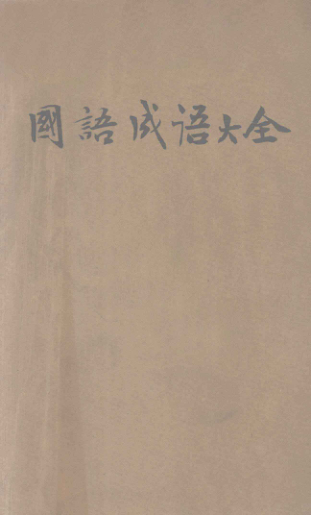 國語成语大全